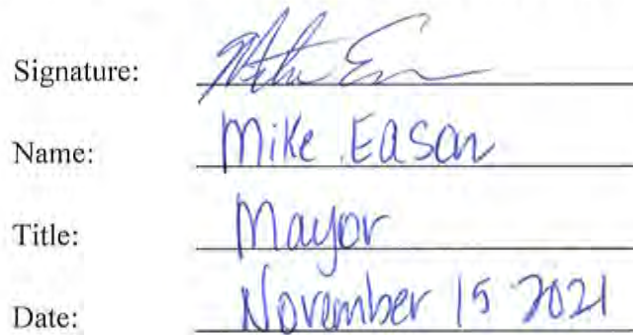 Signature: Mike Eason
Name: Mike Eason
Title: Mayor
Date: November 15 2021